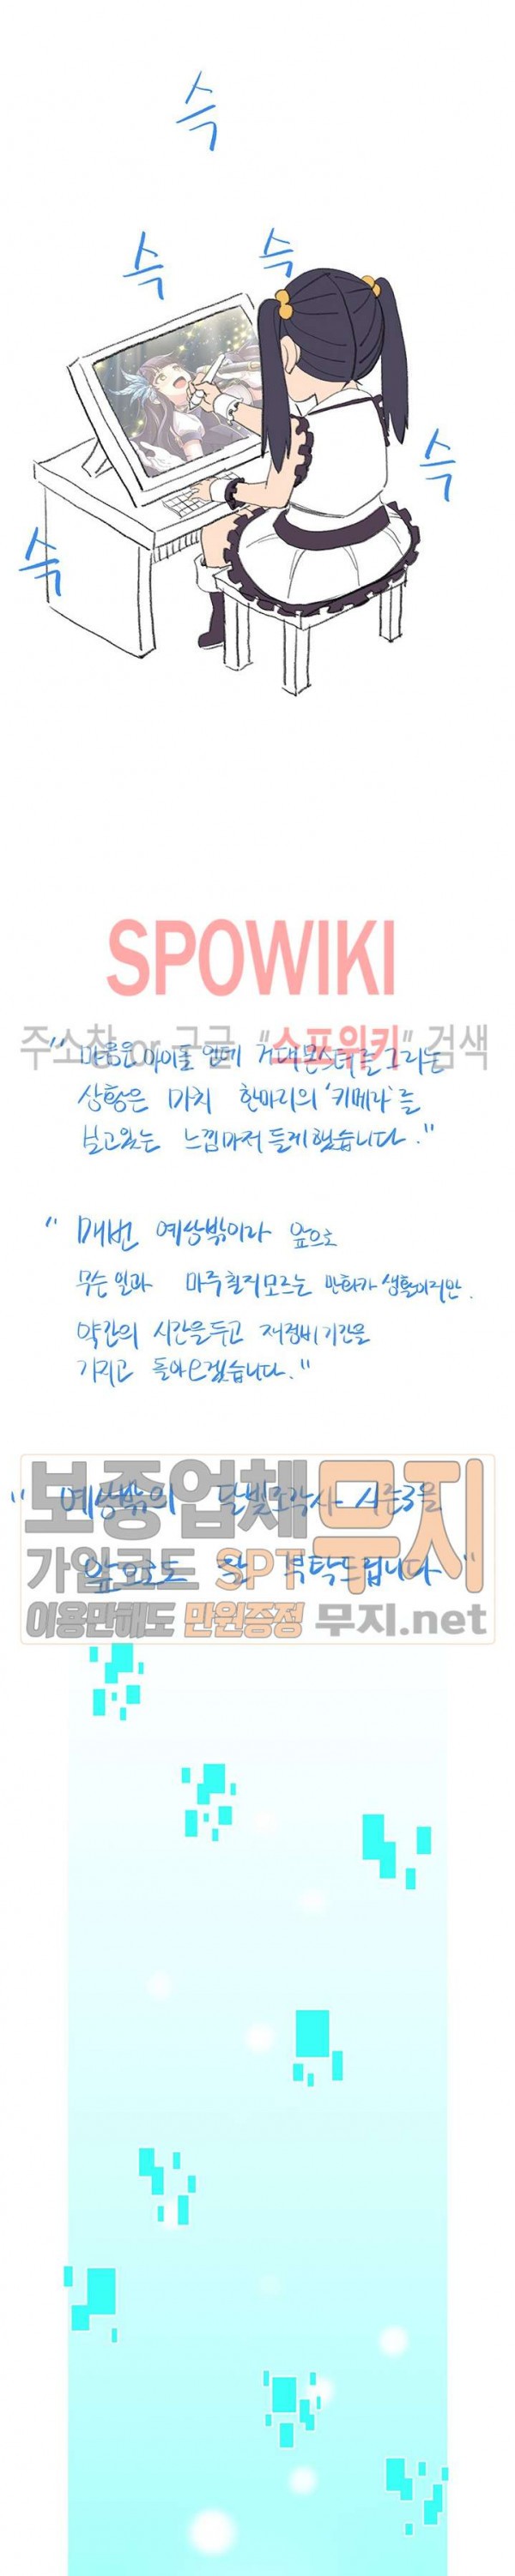 슥
슥
슥
슥
슥
SPOWIKI
주소창 or 구글 "스포위키" 검색
"마음은 아이돌인데 거대 몬스터를 그리는
상황은 마치 한마리의 '키메라'를
보고있는 느낌마저 들게 했습니다."
"매번 예상밖이라 앞으로
무슨일과 마주칠지모르는 만화가 생활이지만.
약간의 시간을두고 재정비기간을
가지고 돌아오겠습니다."
"예상밖의 달빛조각사 시즌3를
앞으로도 잘 부탁드립니다"
보증업체 무지
가입코드 SPT
이용만해도 만원증정 무지.net